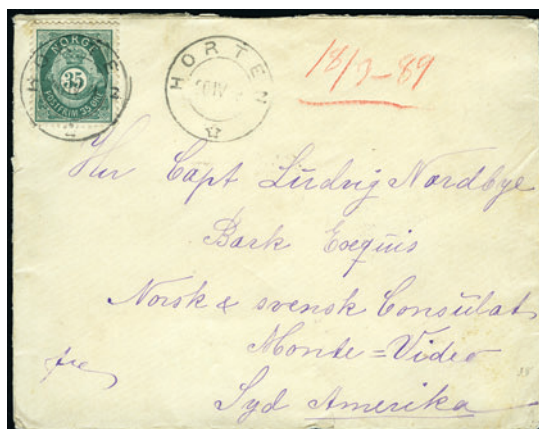 NORGE
35
POSTFRIM. 35 ØRE
HORTEN
HORTEN
18/9-89
Herr Capt Ludvig Nordbye
Bark Exquis
Norsk & svensk Consulat
Monte=Video
fra
Syd Amerika